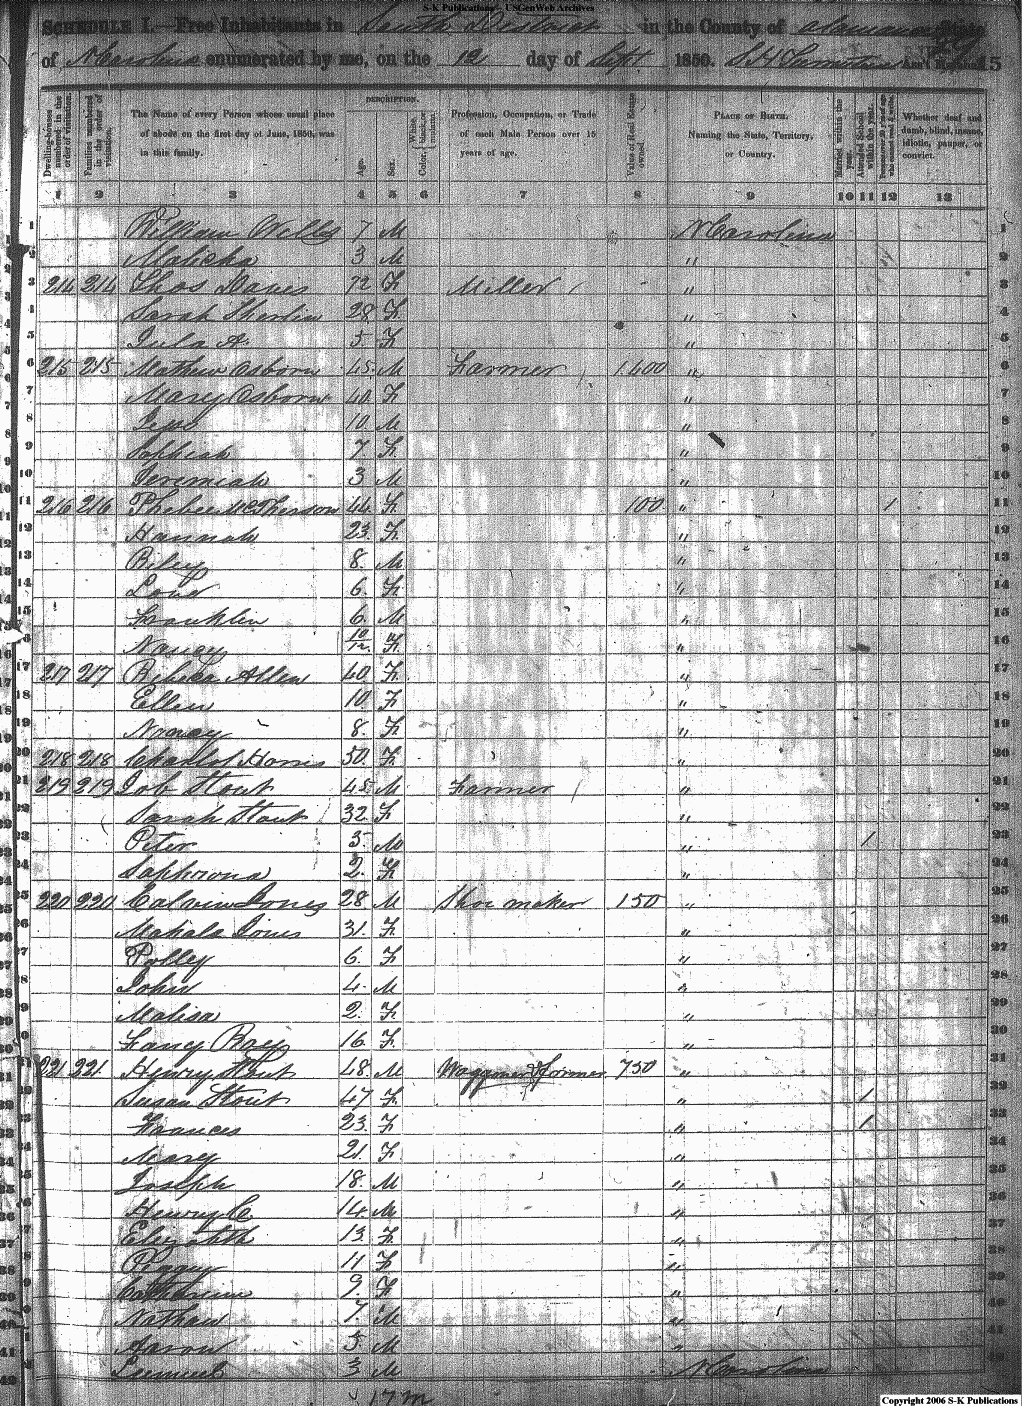 S-K Publications - USGenWeb Archives
SCHEDULE I.—Free Inhabitants in South District in the County of Alamance State
of N Carolina enumerated by me, on the 12 day of Sept 1850.
Dwelling-houses numbered in the order of visitation.
Families numbered in the order of visitation.
The Name of every Person whose usual place of abode on the first day of June, 1850, was in this family.
DESCRIPTION.
Age.
Sex.
White, black, or mulatto.
Color,
Profession, Occupation, or Trade of each Male Person over 15 years of age.
Value of Real Estate owned.
PLACE OF BIRTH. Naming the State, Territory, or Country.
Married within the year.
Attended School within the year.
Whether deaf and dumb, blind, insane, idiotic, pauper, or convict.
1 2 3 4 5 6 7 8 9 10 11 12 13
1 William Wells 7 M N Carolina 1
2 Malisha 3 M " 2
3 214 214 Thos Davis 72 F Miller " 3
4 Sarah Sherlin 28 F " 4
5 Jula A. 5 F " 5
6 215 215 Mathew Osborn 45 M Farmer 1400 " 6
7 Mary Osborn 40 F " 7
8 Jess 10 M " 8
9 Sophiah 7 F " 9
10 Jeremiah 3 M " 10
11 216 216 Phebee McPherson 44 F 100 " 1 11
12 Hannah 23 F " 12
13 Riley 8 M " 13
14 6 F " 14
15 Franklin 6 M " 15
16 Nancy 10/12 F " 16
17 217 217 Rebeca Allen 40 F " 17
18 Ellen 10 F " 18
19 Nancy 8 F " 19
20 218 218 Charlot Horris 50 F " 20
21 219 219 Job Stout 45 M Farmer " 21
22 Sarah Stout 32 F " 22
23 Peter 5 M " 1 23
24 Saphrona 2 F " 24
25 220 220 Calvin Jones 28 M Shoe maker 150 " 25
26 Mahala Jones 31 F " 26
27 Polley 6 F " 27
28 John 4 M " 28
29 Malisa 2 F " 29
30 16 F " 30
31 221 221 Henry Stout 48 M Waggoner & Farmer 750 " 31
Susan Stout 47 F " 1
33 Frances 23 F " 1 33
34 Mary 21 F " 34
35 Joseph 18 M " 35
36 Henry C. 14 M " 36
37 Elizabeth 13 F " 37
38 Piggy 11 F " 38
39 Catharine 9 F " 39
40 Nathan 7 M " 40
41 Aaron 5 M " 41
42 Lemuel 3 M N Carolina
17 m
Copyright 2006 S-K Publications